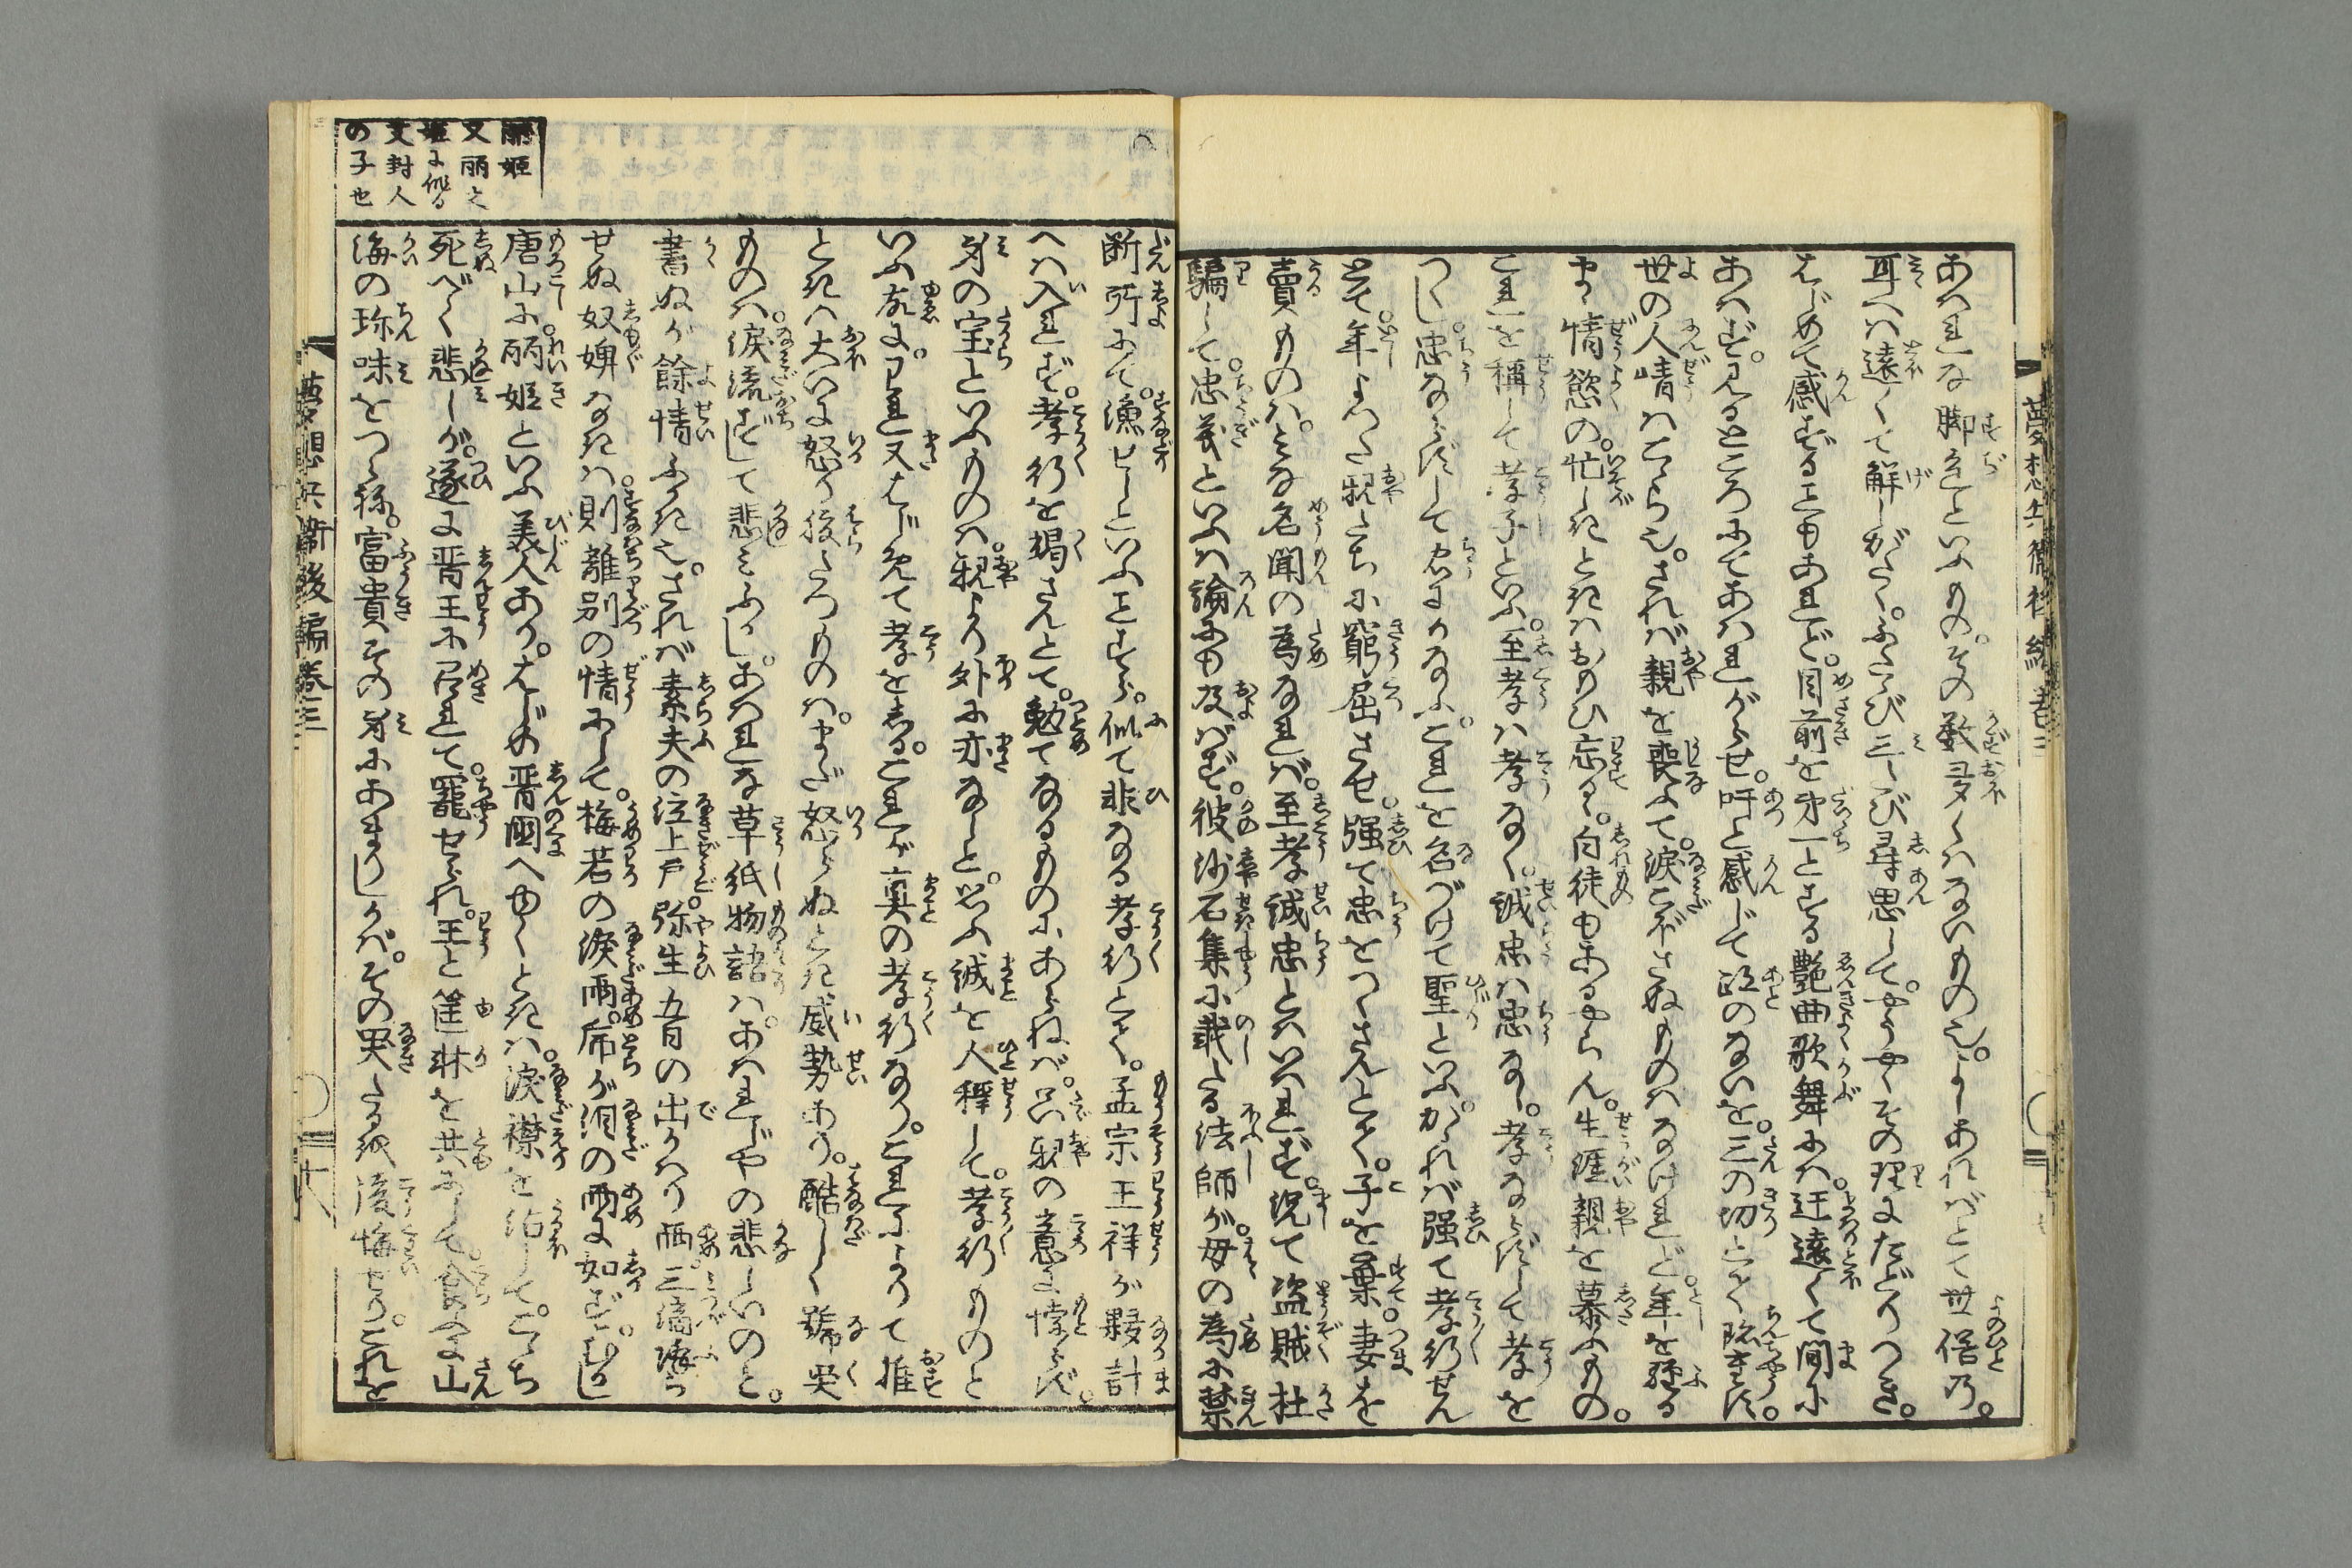 あはれな脚色といふもの。その数多くはないもの也。よしあればとて世俗乃。
耳へは遠くて解しがたく。ふたゝび三たび尋思して。やうやくその理にたどりつき。
はじめて感ずることもあれど。目前を第一とする艶曲歌舞には。迂遠くて間に
あはず。見るところにてあはれがらせ。吁と感じて跡のないを。三の切とく珎重す。
世の人情はこゝら也。されば親を喪ふて。涙こぼさぬものはなけれど。年を経る
まゝ情慾の。忙しきときはおもひ忘るゝ。白徒もあるやらん。生涯親を慕ふもの。
これを稱して孝子といふ。至孝は孝なく。誠忠は忠なし。孝ならずして孝を
つくし。忠ならずして忠にかなふ。これを名づけて聖といふ。かゝれば强て孝行せん
とて。年よつた親たちに窮屈させ。强て忠をつくさんとて。子を棄。妻を
賣ものは。みな名聞の為なれば。至孝誠忠とはいはれず。况て盗賊杜
騙して。忠義といふは論にも及ばず。彼沙石集に載たる法師が。母の為に禁
断所にて。漁せしといふことすら。似て非なる孝行とて。孟宗王祥が夥計
へは入れず。孝行を竭さんとて。勉てなるものにあらねば。只親の意に悖らず。
身の宝といふものは。親より外に亦なしと。思ふ誠を人稱して。孝行ものと
いふ故に。われ又はじめて孝をしる。これが真の孝行なり。これによりて推
ときは大いに怒り腹たつものは。まだ怒らぬとき威勢あり。酷しく號哭
ものは。涙流ずして悲みふかし。あはれな草紙物語は。あはれじやの悲しいのと。
書ぬが餘情ふかき也。されば素夫の泣上戸。弥生五百の出かはり雨。三滴落ち
せぬ奴婢なきは。則離別の情にして。梅若の涙雨。虎が泪の雨に如ず。むかし
唐山に。丽姫といふ美人あり。はじめ晋國へゆくときは。涙襟を沾して。こゝち
死べく悲しが。遂に晋王に召れて。寵せられ。王と筐牀を共にして。食ふに山
海の珎味をつらね。富貴その身にあまりしかば。その哭たるを後悔せり。これを
丽姫
又丽之
姫に作る
艾封人
の子也
夢想兵衞後編 卷三
夢想兵衞後編 卷三